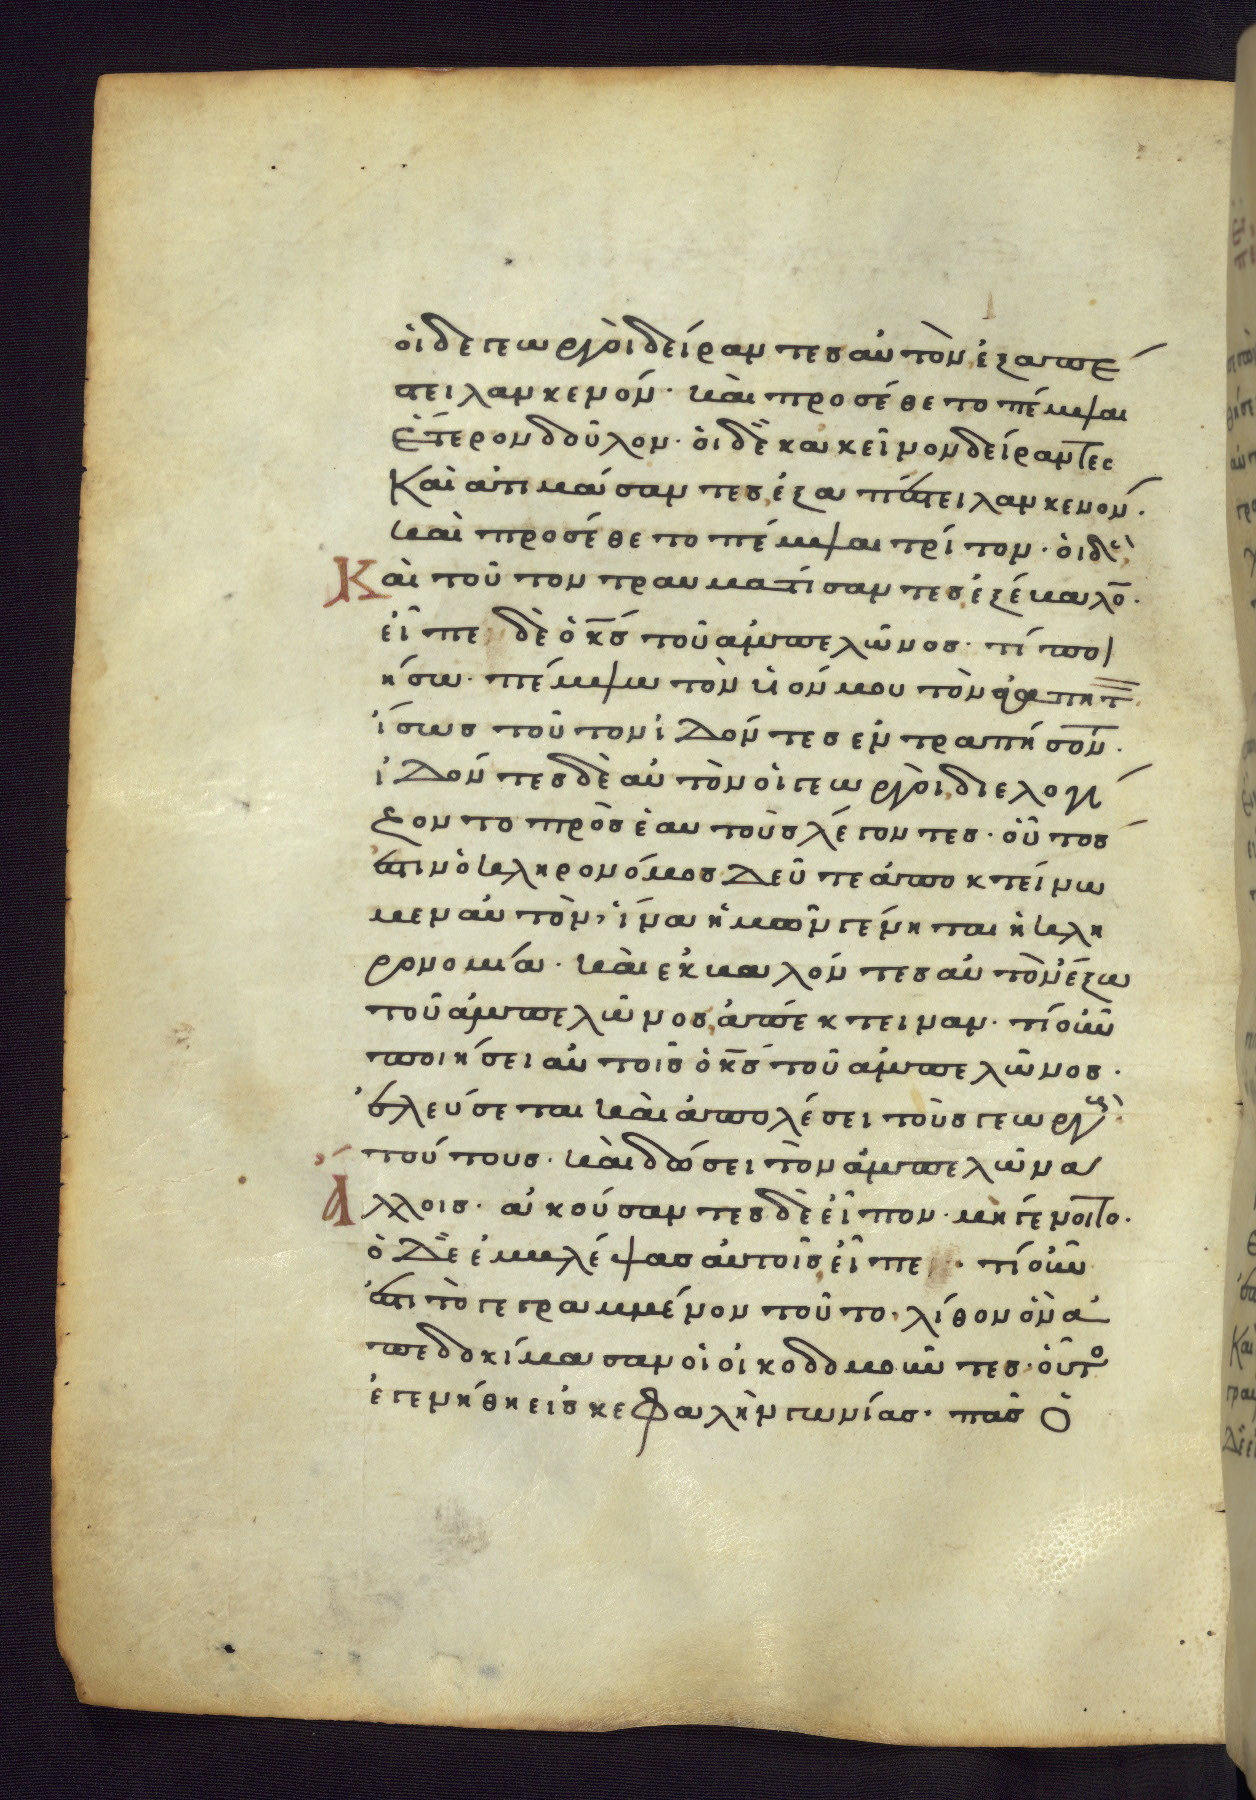 οἱ δὲ γεωργοὶ δείραντες αὐτὸν ἐξαπέ
στειλαν κενόν· καὶ προσέθετο πέμψαι
ἕτερον δοῦλον· οἱ δὲ κακεῖνον δείραντες
Καὶ ἀτιμάσαντες ἐξαπέστειλαν κενόν·
καὶ προσέθετο πέμψαι τρίτον· οἱ δὲ
Καὶ τοῦτον τραυματίσαντες ἐξέβαλο̅·
εἶπε δὲ ὁ κ̅ς̅ τοῦ ἀμπελῶνος· τί ποι
ήσω· πέμψω τὸν υἱόν μου τὸν ἀγαπητ
ἴσως τοῦτον ἰδόντες ἐντραπήσον·
ἰδόντες δὲ αὐτὸν οἱ γεωργοὶ διελογί
ζοντο πρὸς ἑαυτοὺς λέγοντες· οὗτος
ἐστιν ὁ κληρονόμος δεῦτε ἀποκτείνω
μεν αὐτὸν, ἵνα ἡμῶν γένηται ἡ κλη
ρονομία· καὶ ἐκβαλόντες αὐτὸν ἔξω
τοῦ ἀμπελῶνος, ἀπέκτειναν· τί οὖν
ποιήσει αὐτοῖς ὁ κ̅ς̅ τοῦ ἀμπελῶνος·
ἐλεύσεται καὶ ἀπολέσει τοὺς γεωργοὺς
τούτους· καὶ δώσει τὸν ἀμπελῶνα
ἄλλοις· ἀκούσαντες δὲ εἶπον· μὴ γένοιτο·
ὁ δὲ ἐμβλέψας αὐτοῖς εἶπε· τί οὖν
ἐστι τὸ γεγραμμένον τοῦτο· λίθον ὃν ἀ
πεδοκίμασαν οἱ οἰκοδομοῦντες· οὗτο
ἐγενήθη εἰς κεφαλὴν γωνίας· πᾶς ὁ